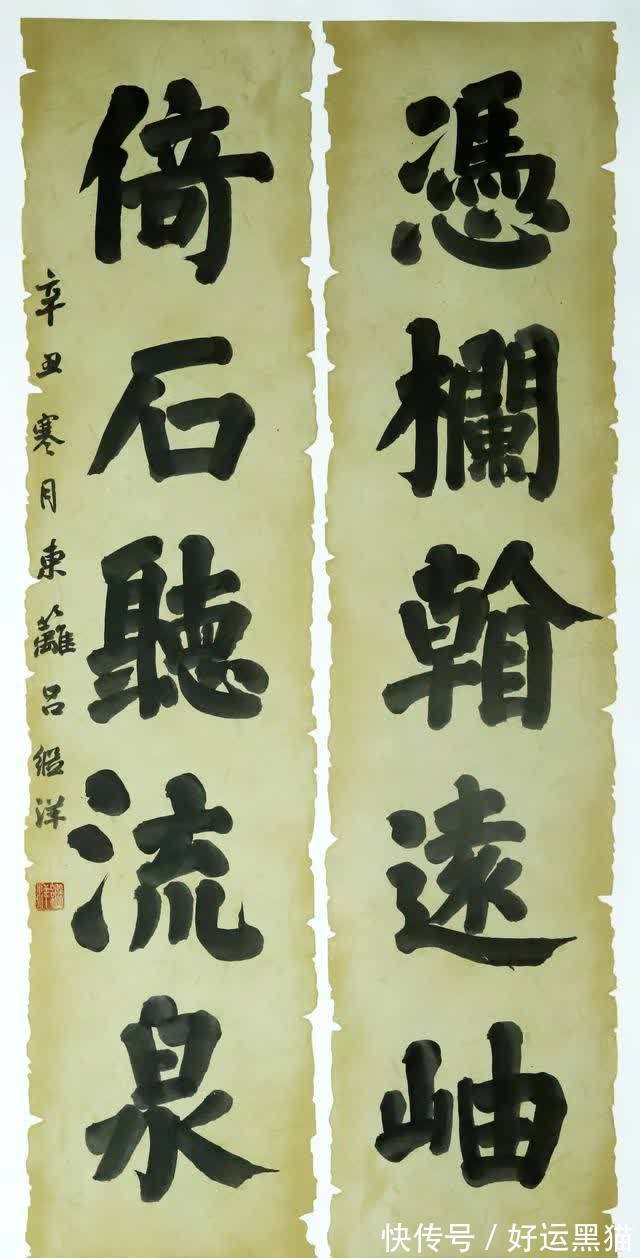 憑欄遠岫
倚石聽流泉
辛丑寒月東籬呂洋
快传号 / 好运黑猫